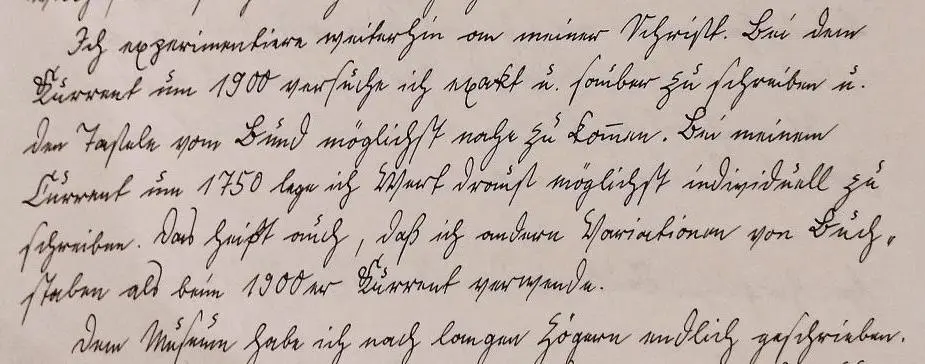 Ich experimentiere weiterhin an meiner Schrift. Bei dem
Kurrent um 1900 versuche ich exakt u. sauber zu schreiben u.
den Tafeln vom Bund möglichst nahe zu kom̅en. Bei meinem
Current um 1750 lege ich Wert drauf möglichst individuell zu
schreiben. Das heißt auch, daß ich andere Variationen von Buch„
staben als beim 1900er Kurrent verwende.
Dem Museum habe ich nach langen Zögern endlich geschrieben.